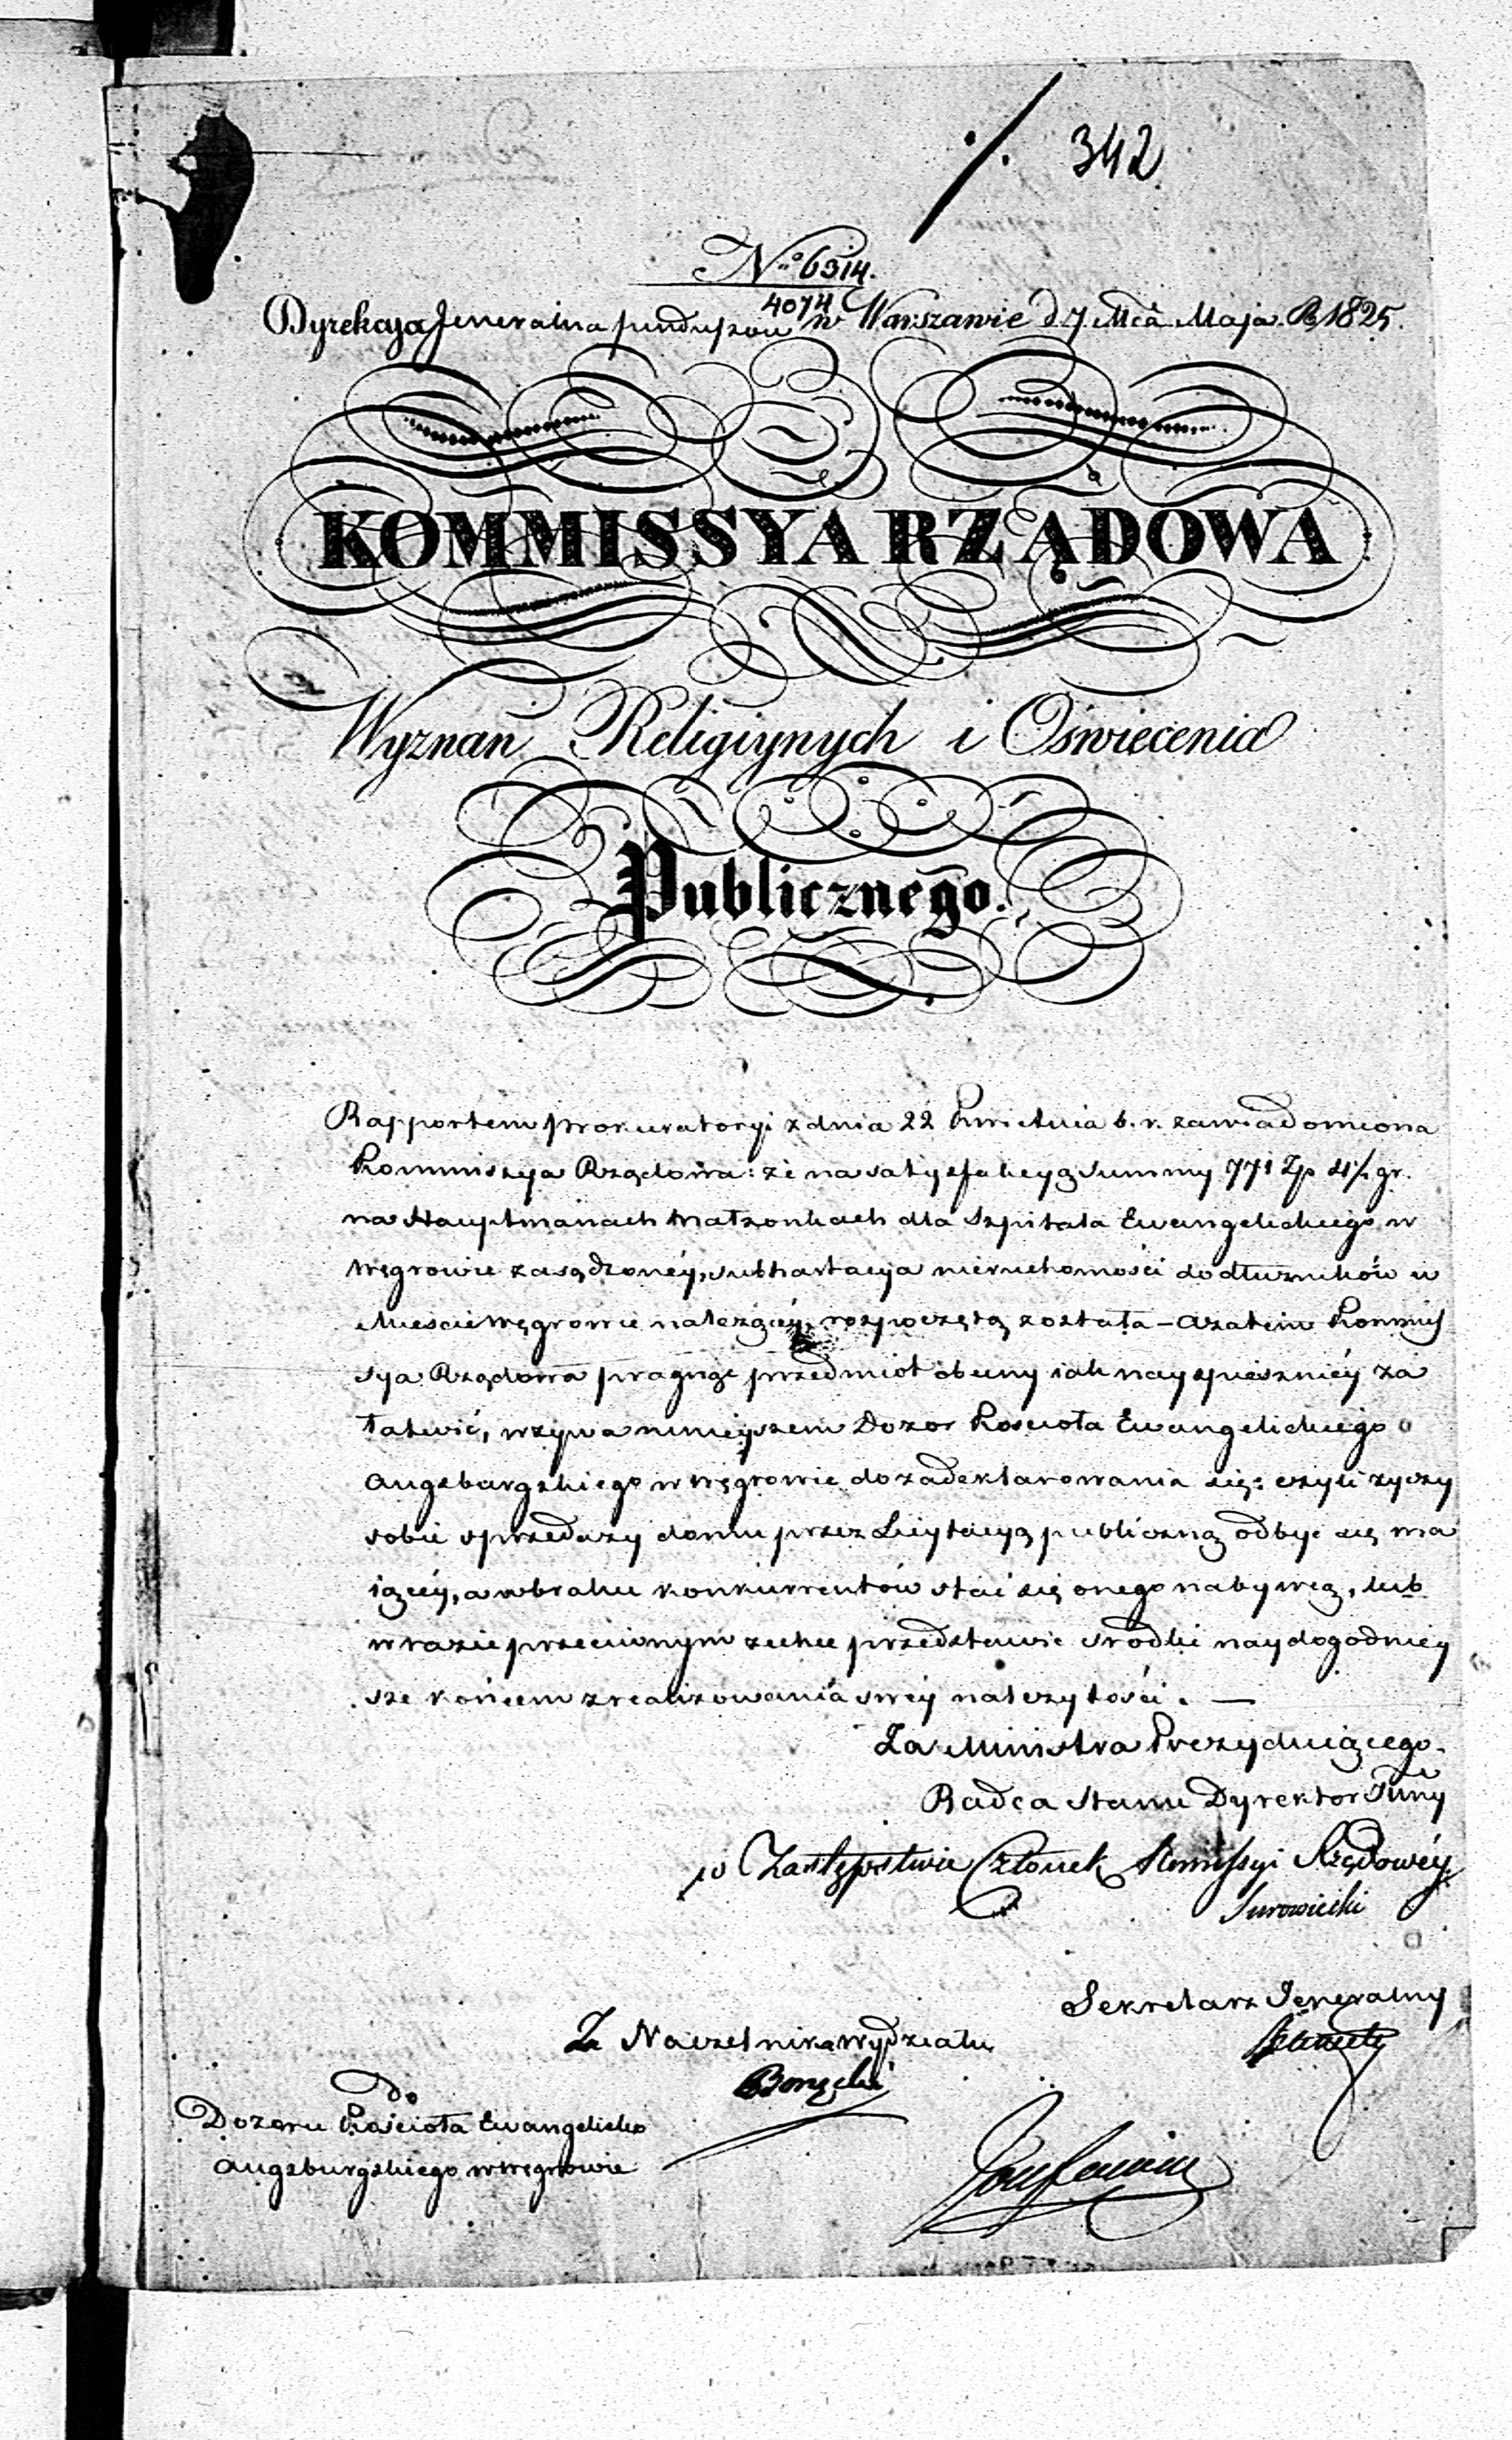 342
Nro 6314.
4074
Dyrekcya Jeneralna funduszów w Warszawie d. 7 Mca Maja R. 1825.
KOMMISSYA RZĄDOWA
Wyznań Religiynych i Oświecenia
Publicznego.
Rapportem Prokuratoryi z dnia 22 Kwietnia b. r. zawiadomiona
Kommissya Rządowa: że na satysfakcyą summy 771 Zp gr.
na Hauptmanach Małżonkach dla Szpitala Ewangelickiego w
Węgrowie zasądzonéy, subhastacya nieruchomości do dłużników w
Mieście Węgrowie należącéy, rozpoczętą została – azatem Kommis
sya Rządowa pragnąc przedmiot obecny iak nayspiesznéy za
łatwić, wzywa ninieyszem Dozor Kościoła Ewangelickiego
Augsburgskiego w Węgrowie do zadeklarowania się: czyli życzy
sobie sprzedaży domu przez Licytacyą publiczną odbyć się ma
iącéy, a w braku konkurrentów stać się onego nabywcą, lub
w razie przeciwnym zechce przedstawić srodki naydogodniey
sze końcem zrealizowania swéy należytości. —
Za Ministra Prezyduiącego.
Radca Stanu Dyrektor Jlny
w Zastępstwie Członek Komissyi Rządowéy
Surowiecki
Sekretarz Jeneralny
Za Naczelnika Wydziału
Do
Dozoru Kościoła Ewangelicko
Augsburgskiego w Węgrowie